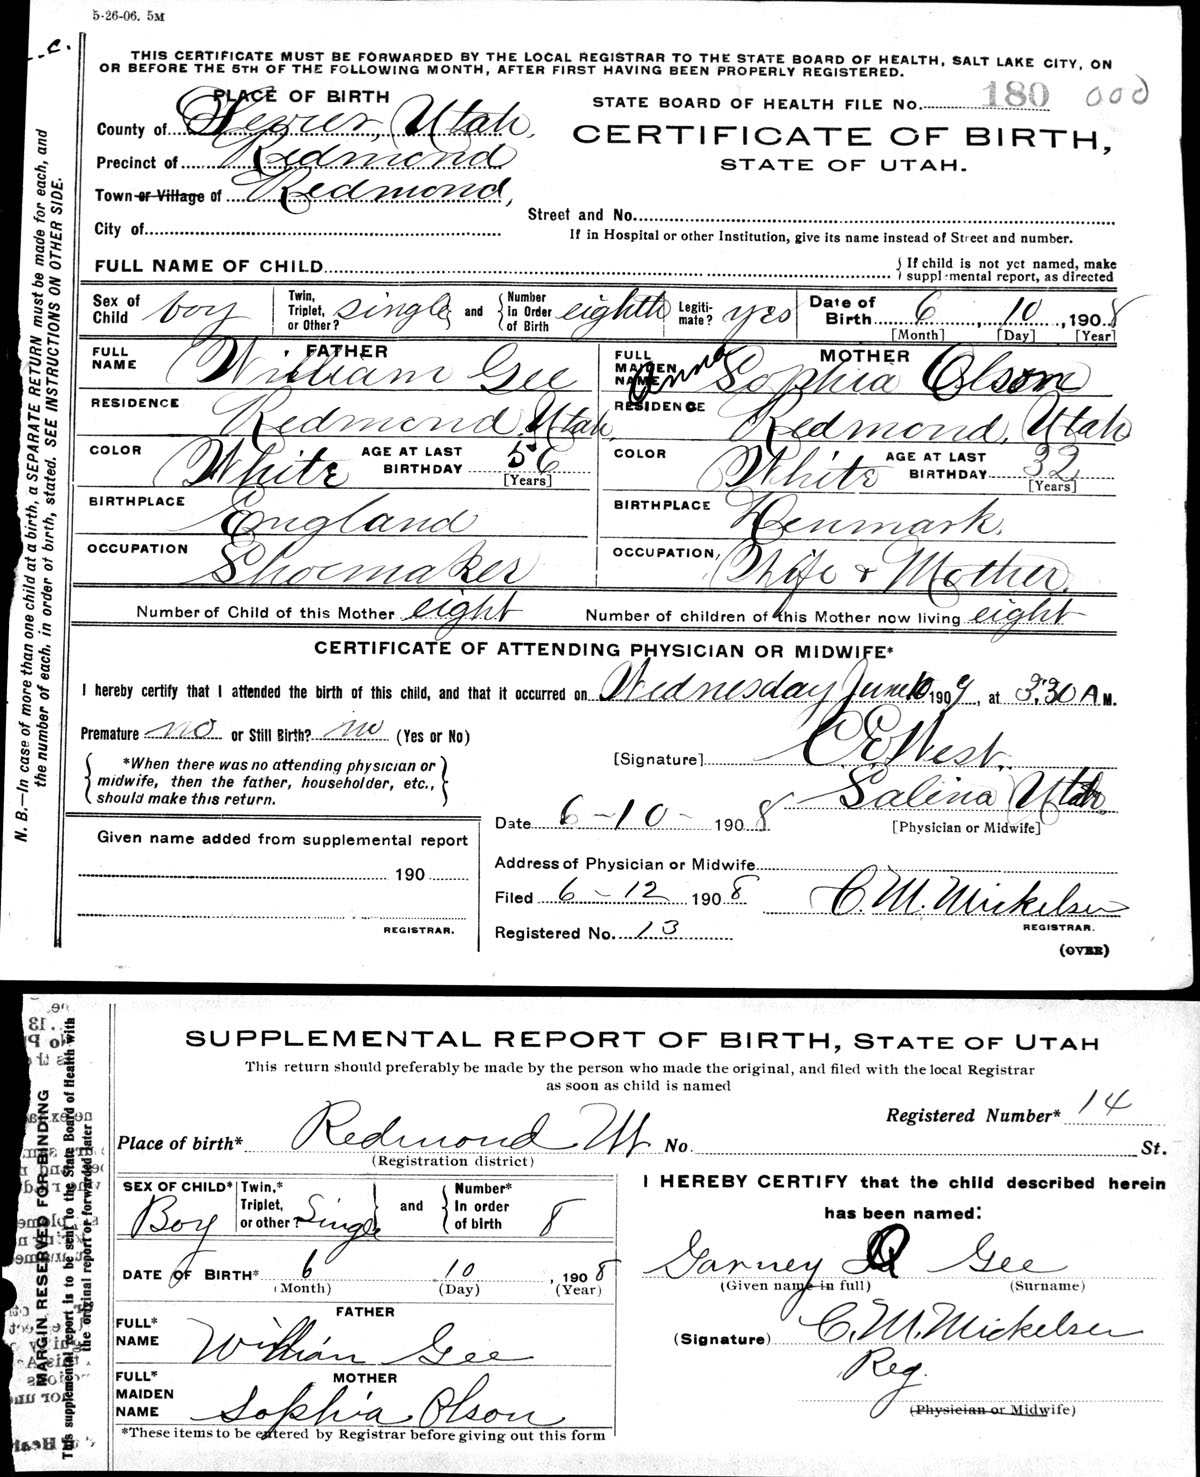 5-26-06. 5M
C.
THIS CERTIFICATE MUST BE FORWARDED BY THE LOCAL REGISTRAR TO THE STATE BOARD OF HEALTH, SALT LAKE CITY, ON
OR BEFORE THE 5TH OF THE FOLLOWING MONTH, AFTER FIRST HAVING BEEN PROPERLY REGISTERED.
PLACE OF BIRTH
STATE BOARD OF HEALTH FILE NO. 180 000
County of Sevier, Utah.
CERTIFICATE OF BIRTH,
Precinct of Redmond
STATE OF UTAH.
Town or Village of Redmond,
Street and No.
City of
If in Hospital or other Institution, give its name instead of Street and number.
FULL NAME OF CHILD
{ If child is not yet named, make
supplemental report, as directed
Sex of Child boy
Twin, Triplet, or Other? single and { Number In Order of Birth eighth
Legitimate? yes
Date of Birth 6, 10, 1908
[Month] [Day] [Year]
FATHER
FULL NAME William Gee
MOTHER
FULL MAIDEN NAME Anna Sophia Olson
RESIDENCE Redmond, Utah,
RESIDENCE Redmond, Utah
COLOR White AGE AT LAST BIRTHDAY 56 [Years]
COLOR White AGE AT LAST BIRTHDAY 32 [Years]
BIRTHPLACE England
BIRTHPLACE Denmark.
OCCUPATION Shoemaker
OCCUPATION, Wife & Mother.
Number of Child of this Mother eight Number of children of this Mother now living eight
CERTIFICATE OF ATTENDING PHYSICIAN OR MIDWIFE*
I hereby certify that I attended the birth of this child, and that it occurred on Wednesday June 10 1909, at 3:30 A M.
Premature no or Still Birth? no (Yes or No)
[Signature] C.E. West.
Salina Utah
[Physician or Midwife]
{ *When there was no attending physician or
midwife, then the father, householder, etc.,
should make this return. }
Date 6-10- 1908
Given name added from supplemental report
190
REGISTRAR.
Address of Physician or Midwife
Filed 6-12 1908 C. M. Mickelsen
REGISTRAR.
Registered No. 13
(OVER)
N. B.—In case of more than one child at a birth, a SEPARATE RETURN must be made for each, and
the number of each, in order of birth, stated. SEE INSTRUCTIONS ON OTHER SIDE.
SUPPLEMENTAL REPORT OF BIRTH, STATE OF UTAH
This return should preferably be made by the person who made the original, and filed with the local Registrar
as soon as child is named
Registered Number* 14
Place of birth* Redmond Ut No. St.
(Registration district)
SEX OF CHILD* Boy
Twin,* Triplet, or other? Single } and { Number* In order of birth 8
I HEREBY CERTIFY that the child described herein
has been named:
DATE OF BIRTH* 6 10, 1908
(Month) (Day) (Year)
Garney O Gee
(Given name in full) (Surname)
FATHER
FULL* NAME William Gee
(Signature) C. M. Mickelsen
Reg.
(Physician or Midwife)
MOTHER
FULL* MAIDEN NAME Sophia Olson
*These items to be entered by Registrar before giving out this form
MARGIN RESERVED FOR BINDING
This supplemental report is to be sent to the State Board of Health with
the original report or forwarded later